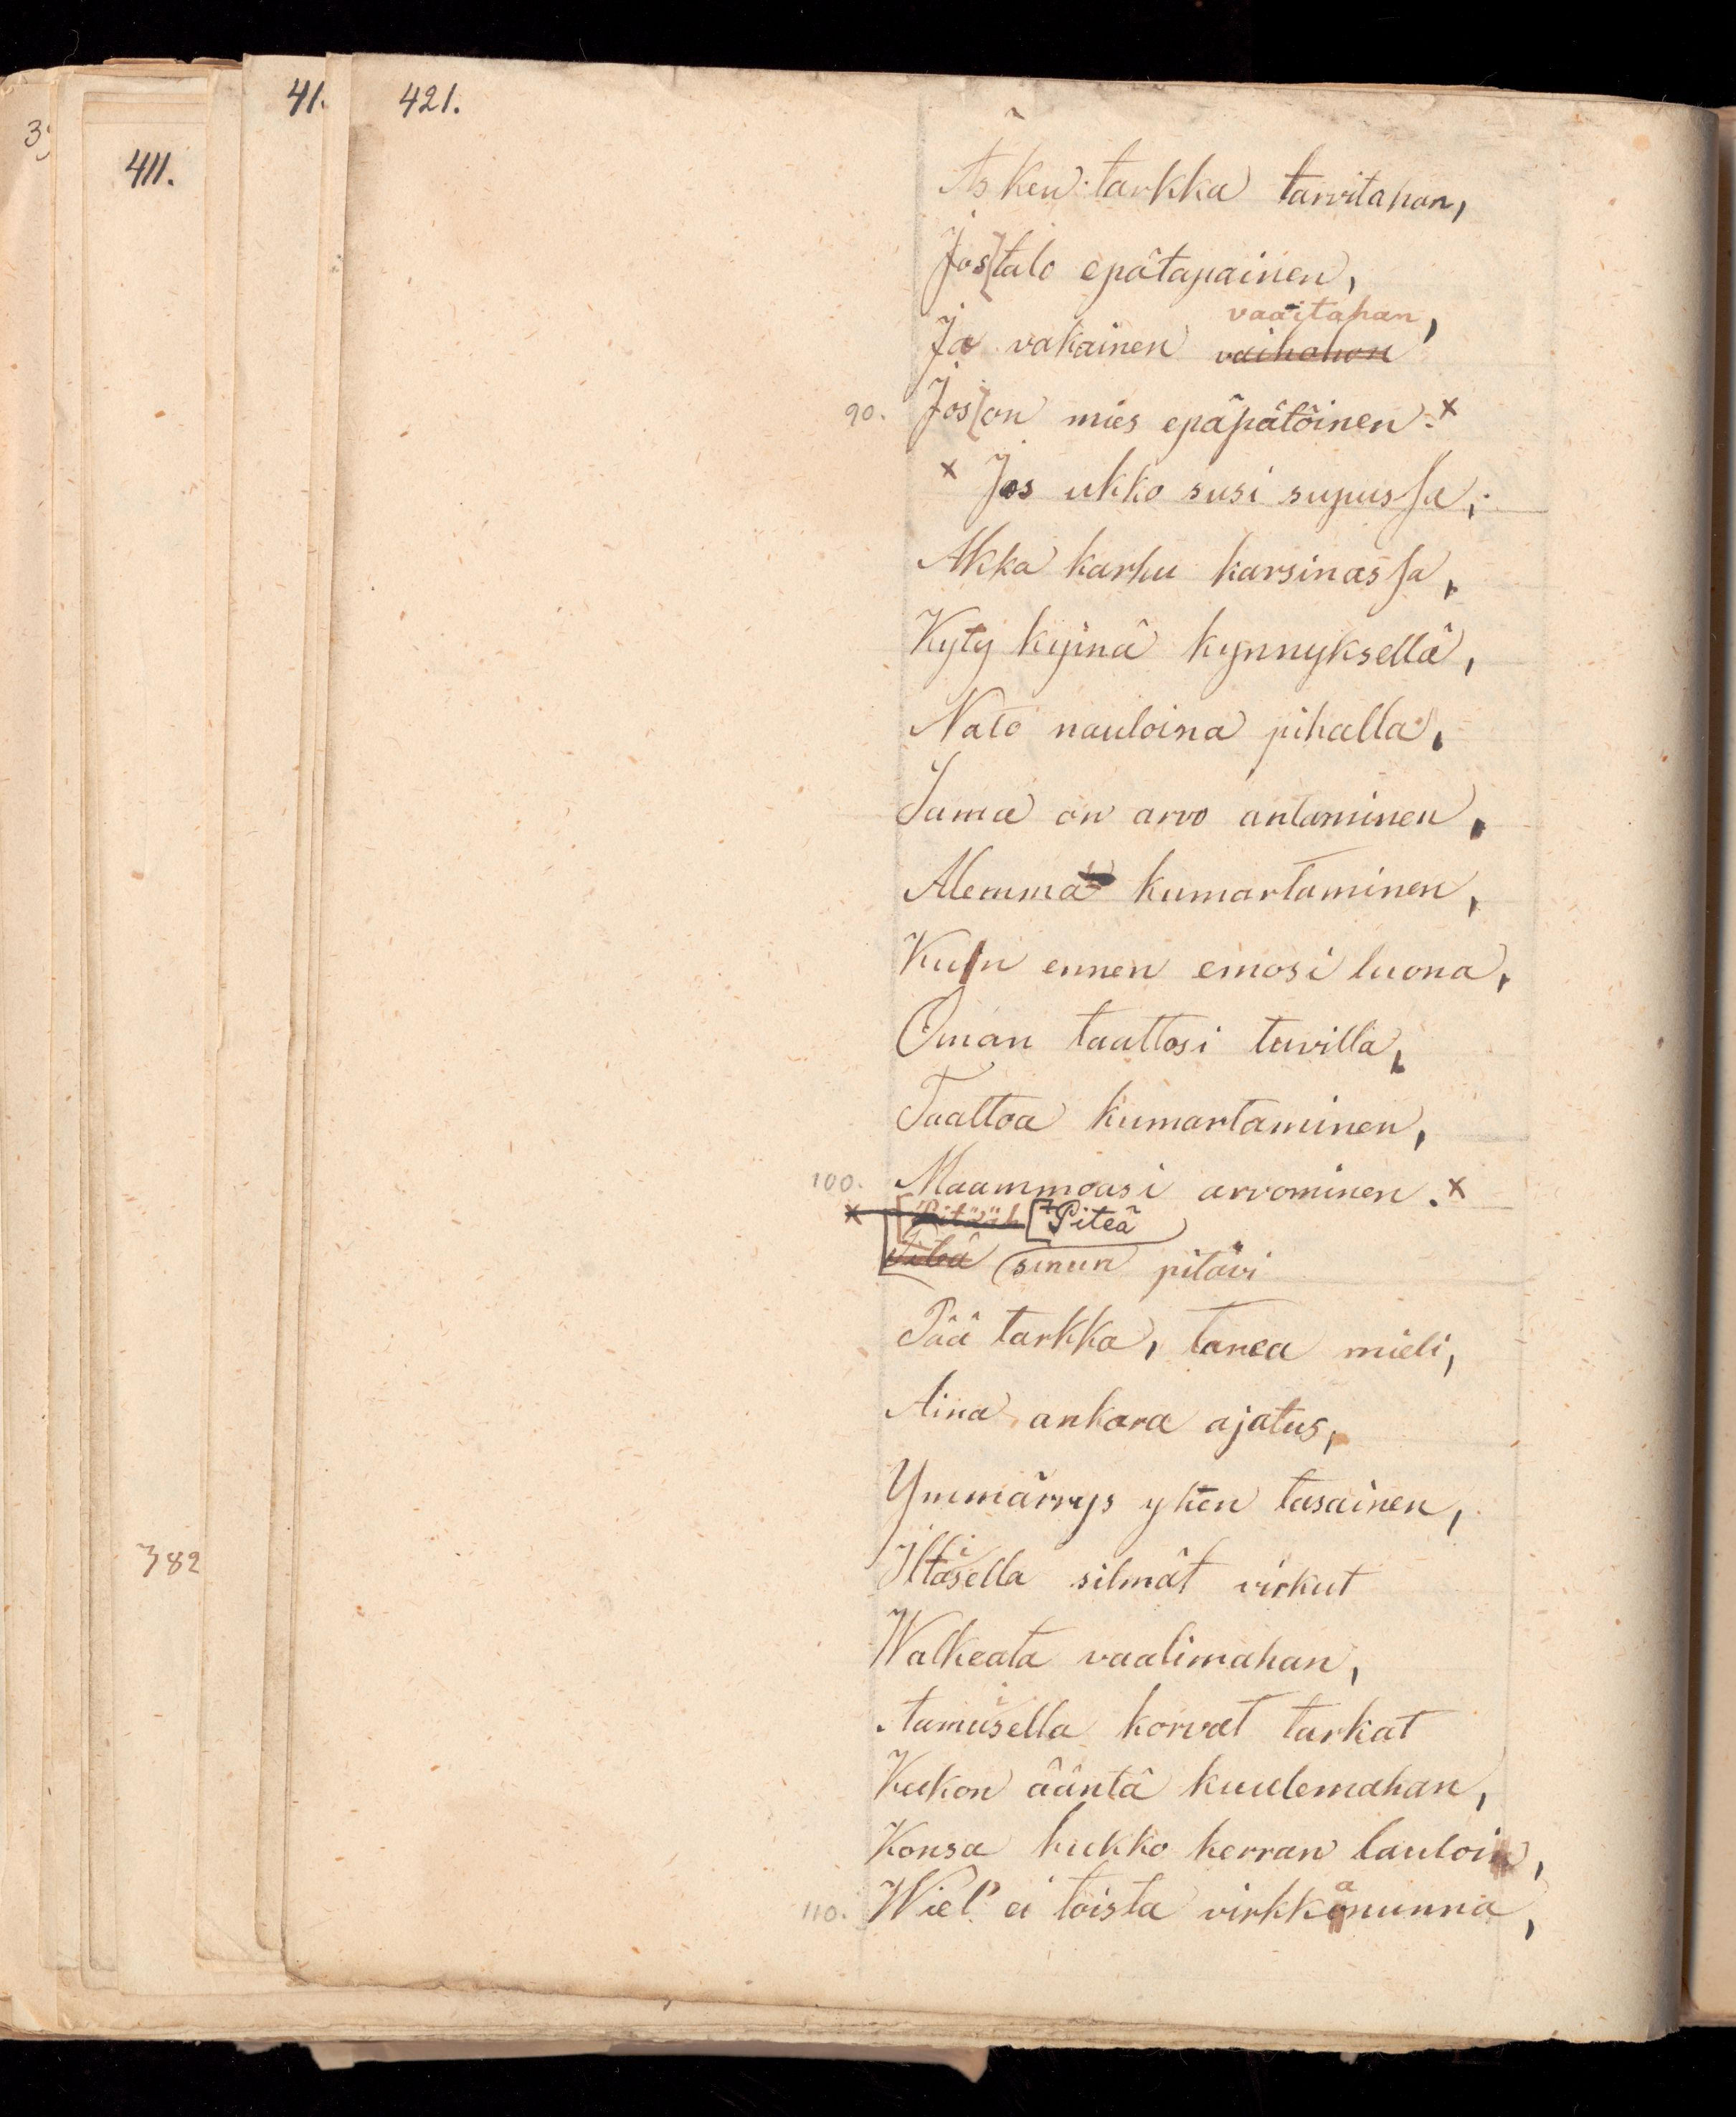 421.
41.
411.
Äsken tarkka tarvitahan,
Jos talo epätapainen,
vaaitahan,
Ja vakainen vaihahan
90. Jos on mies epäpätöinen. x
x Jos ukko susi supussa,
Akka karhu karsinassa,
Kyty kyinä kynnyksellä,
Nato nauloina pihalla,
Sama on arvo antaminen,
Alemma kumartaminen,
Kuin ennen emosi luona,
Oman taattosi tuvilla,
Taattoa kumartaminen,
100. Maammoasi arvominen. x
x [Pitääh [Piteä
sinun pitävi
Pää tarkka, tanea mieli,
Aina ankara ajatus,
Ymmärrys yhen tasainen,
Iltasella silmät virkut
Walkeata vaalimahan,
Aamusella korvat tarkat
Kukon ääntä kuulemahan,
Konsa kukko kerran lauloin,
110. Wiel' ei toista virkkanunna,
382